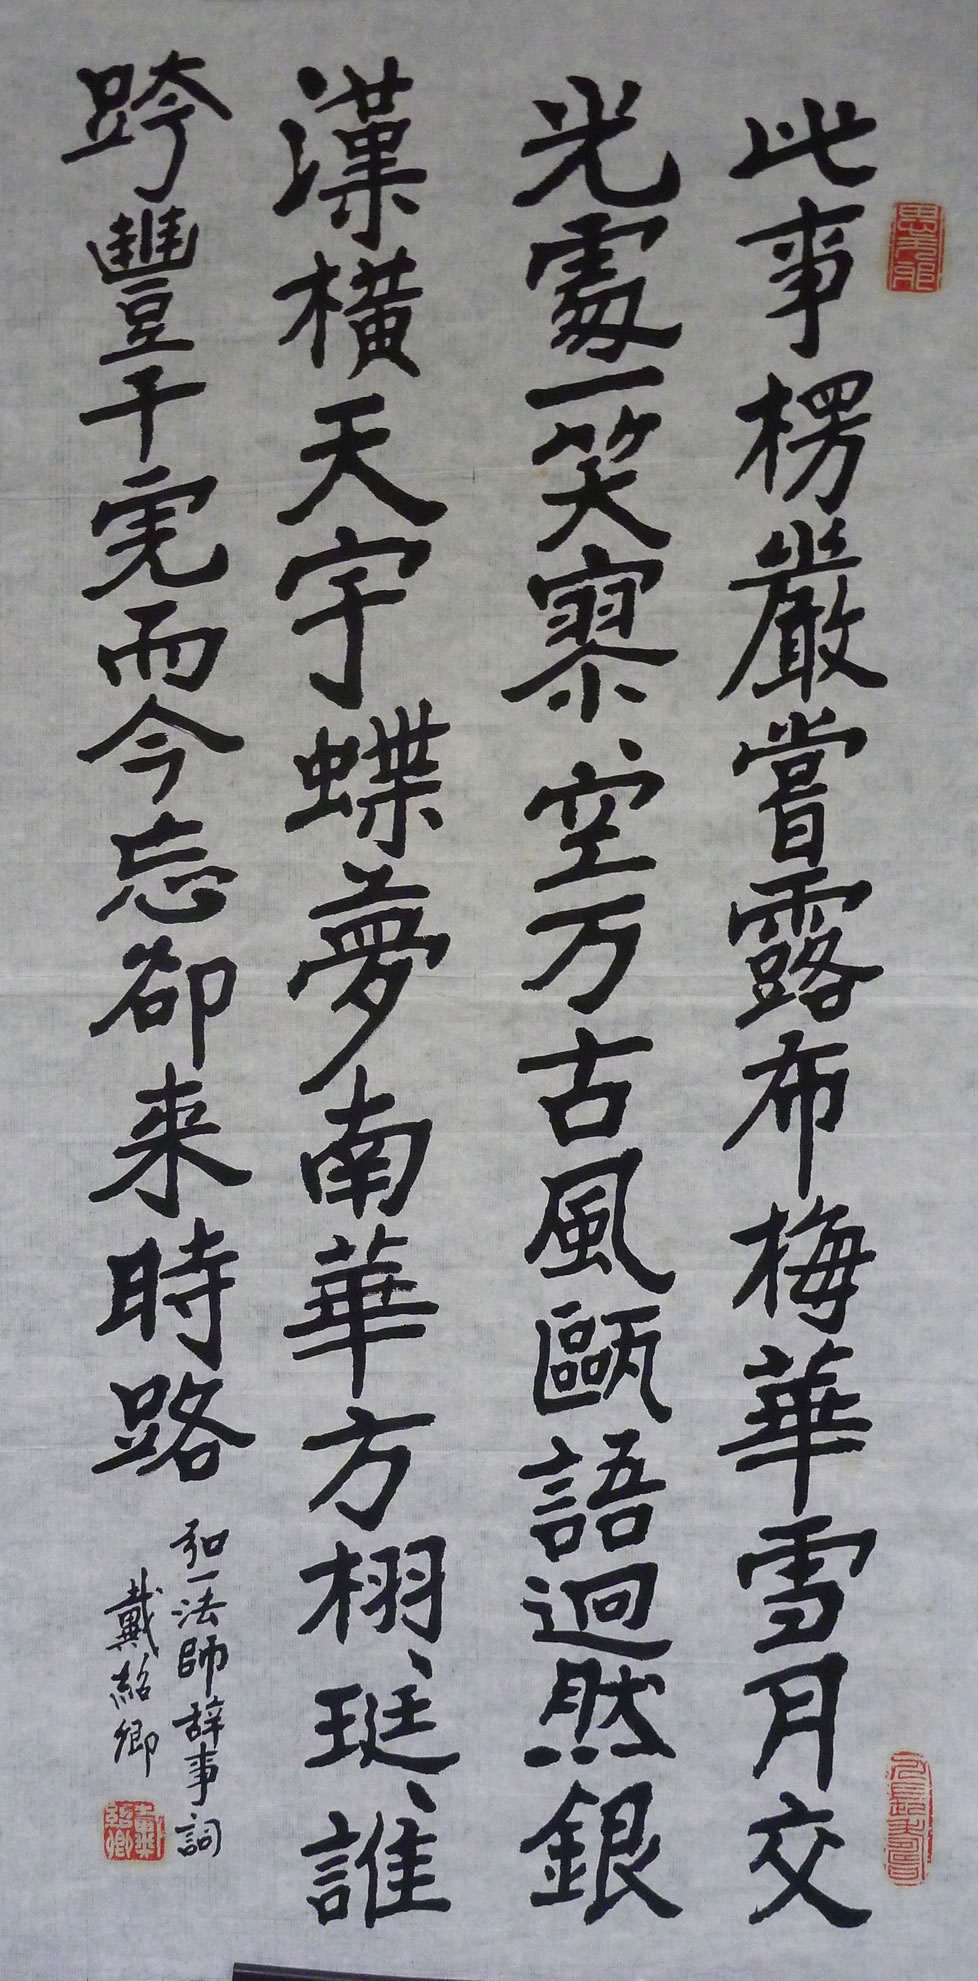 此事楞嚴嘗露布梅華雪月交
光處一笑寥、空万古風甌語迥然銀
漢橫天宇蝶夢南華方栩、珽、誰
跨豐干虎而今忘卻来時路
弘一法師辞事詞
戴紹卿
思無邪
戴紹卿